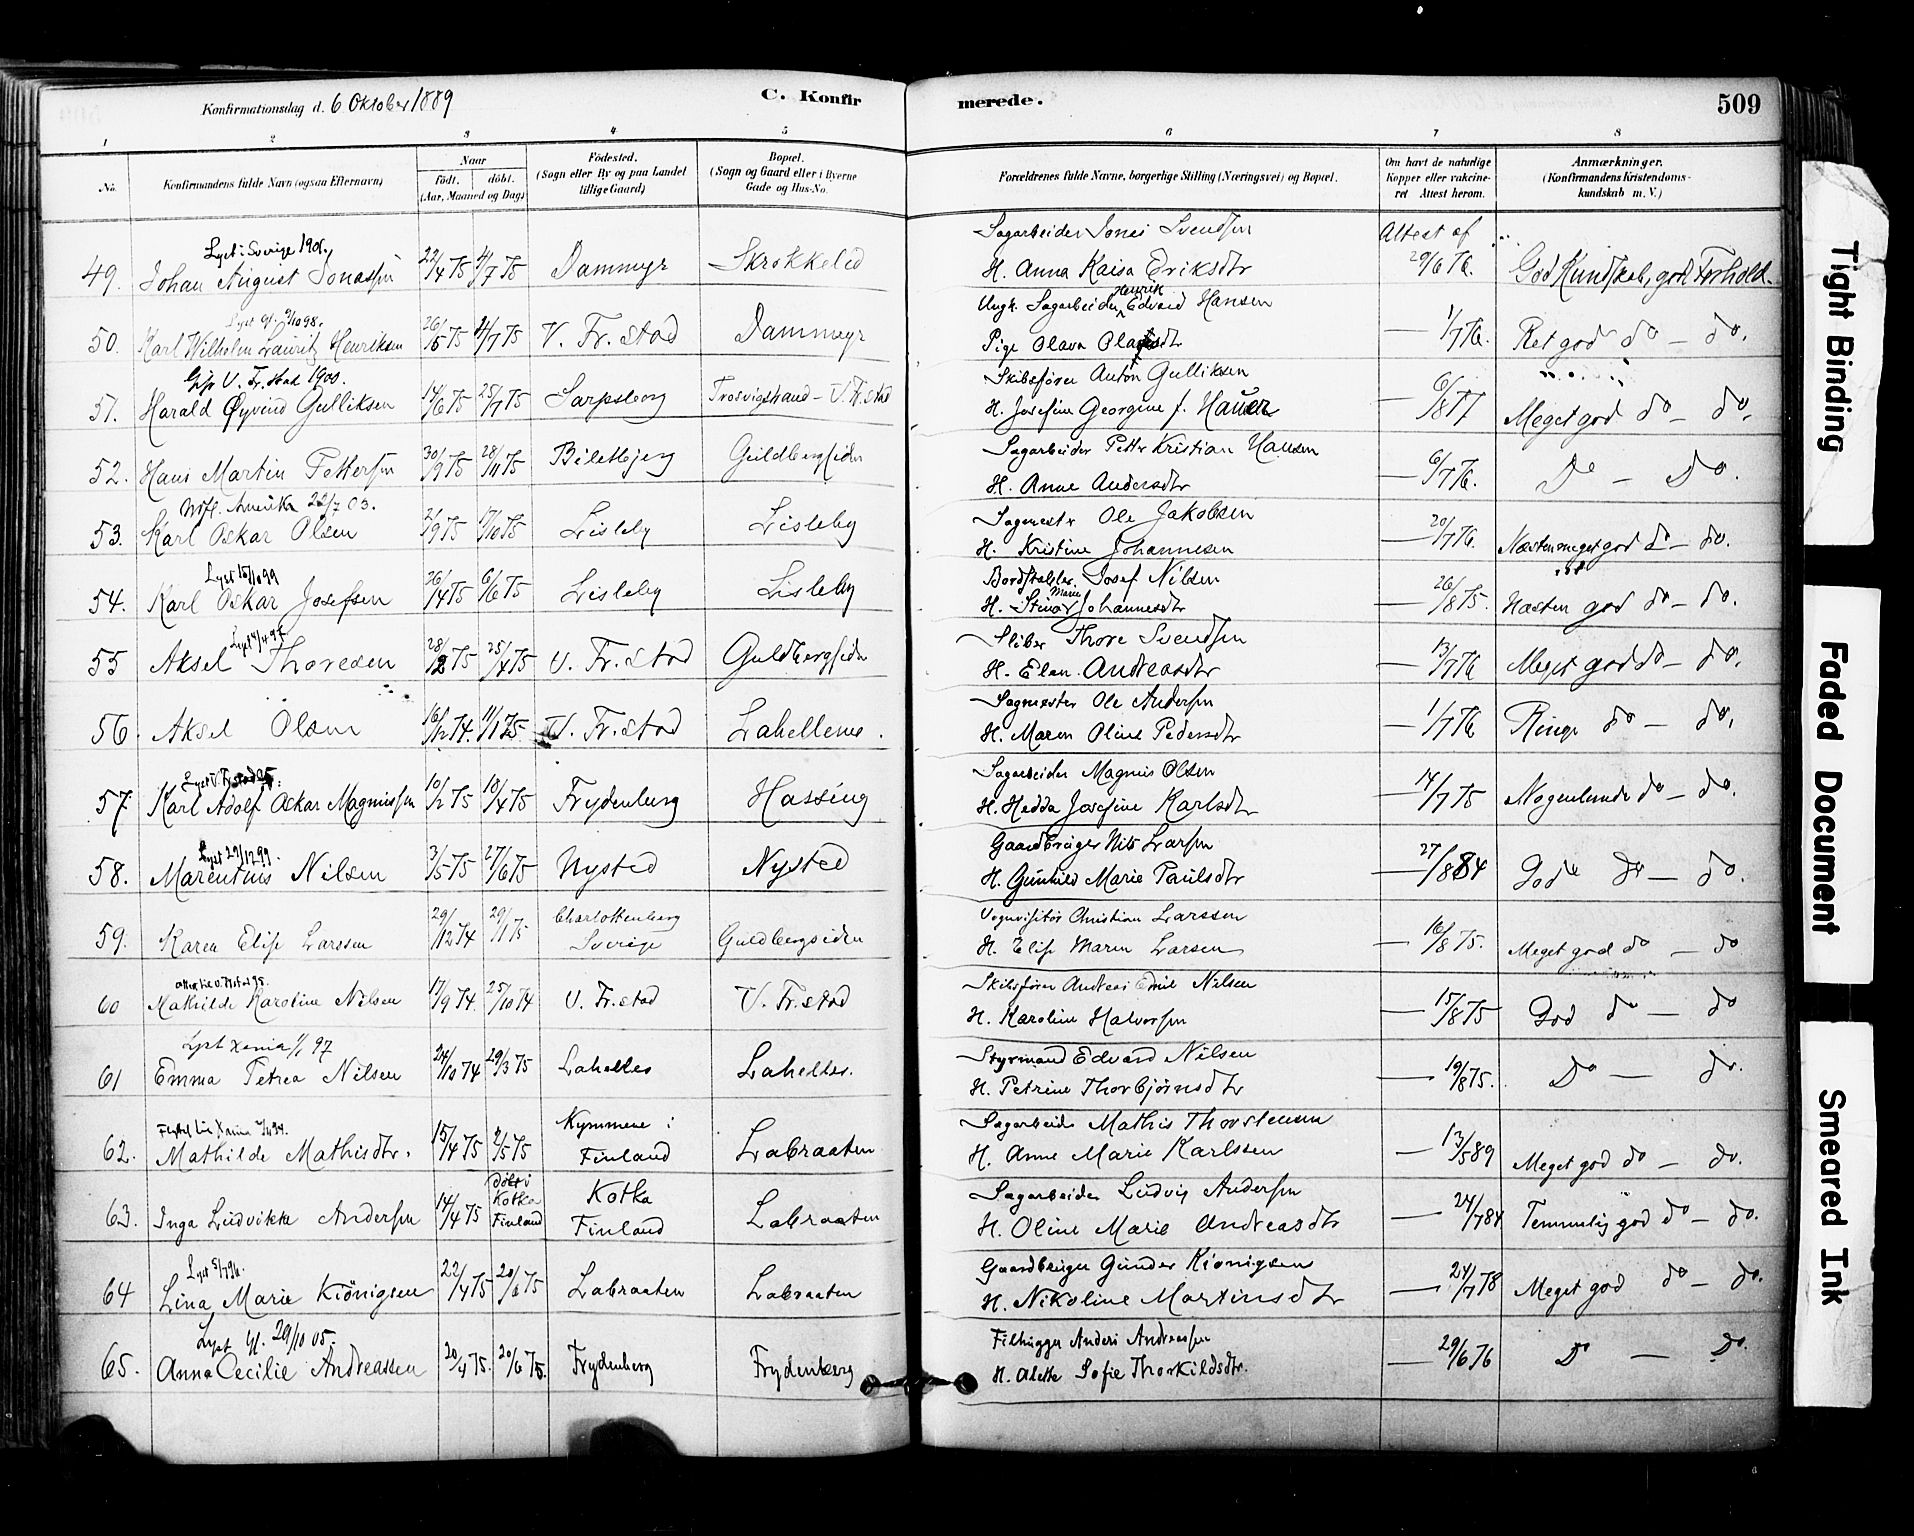 Konfirmationsdag d. 6 Oktober 1889
C. Konfirmerede.
509
1 2 3 4 5 6 7 8
No.
Konfirmandens fulde Navn (ogsaa Efternavn)
Naar
födt. döbt.
(Aar, Maaned og Dag)
Födested.
(Sogn eller By og paa Landet
tillige Gaard)
Bopæl.
(Sogn og Gaard eller i Byerne
Gade og Hus-No.
Forældrenes fulde Navne, borgerlige Stilling (Næringsvei) og Bopæl.
Om havt de naturlige
Kopper eller vakcine-
ret Attest herom.
Anmærkninger.
(Konfirmandens Kristendoms-
kundskab m. V.)
Lyst i Sverige 1901. Sagarbeider Jonas Svendsen Attest af
49. Johan August Jonassen 22/4 75 4/7 75 Dammyr Skrokkelid H. Anna Kaisa Eriksdtr 29/6 76. God Kundskab, god Forhold.
Lyst 9/10 98. Ungk. Sagarbeider Henrik Edvard Hansen
50. Karl Wilhelm Lauritz Henriksen 26/5 75 4/7 75 V. Fr.stad Dammyr Pige Olava Olafsdtr — 1/7 76. Ret god do — do.
Gift V. Fr.stad 1900. Skibsförer Anton Gulliksen
51. Harald Øyvind Gulliksen 14/6 75 25/7 75 Sarpsborg Trosvigstrand - V. Fr.stad H. Josefine Georgine f. Hauer — 6/8 77 Meget god do — do.
Sagarbeider Petter Kristian Hansen
52. Hans Martin Pettersen 30/9 75 28/11 75 Biletbjerg Guldbergsiden H. Anne Andersdtr — 6/7 76. Do — Do.
Utfl. Amerika 22/7 03. Sagmester Ole Jakobsen
53. Karl Oskar Olsen 2/9 75 17/10 75 Lisleby Lisleby H. Kristine Johannesen — 20/7 76. Næsten meget god do — do.
Lyst 15/10 99 Bordstabler Josef Nilsen
54. Karl Oskar Josefsen 26/4 75 6/6 75 Lisleby Lisleby H. Stina Marie Johannesdtr — 26/8 75. Næsten god do — do.
Lyst 4/4 97 Sliber Thore Svendsen
55 Aksel Thoresen 28/2 75 25/4 75 V. Fr.stad Guldbergsiden H. Elen Andreasdtr — 13/7 76 Meget god do — do.
Sagmester Ole Andersen
56. Aksel Olsen 16/12 74. 11/1 75. V. Fr.stad Lahellene. H. Maren Oline Pedersdtr — 1/7 76 Ringe do — do.
Lyst V. Fr.stad 95. Sagarbeider Magnus Olsen
57. Karl Adolf Oskar Magnussen 10/2 75 18/4 75 Frydenberg Hassing H. Hedda Josefine Karlsdtr — 14/7 75 Nogenlunde do — do.
Lyst 29/12 99. Gaardbruger Nils Larsen
58. Marentius Nilsen 3/5 75 27/6 75 Nysted Nysted H. Gunhild Marie Paulsdtr — 27/8 84 God do — do.
Charlottenberg Vognvisitör Christian Larssen
59. Karen Elise Larssen 29/12 74 29/1 75 Sverige Guldbergsiden H. Elise Maren Larsen — 16/8 75. Meget god do — do
Attest til V. Fr.stad 95. Skibsförer Andreas Emil Nilsen
60 Mathilde Karoline Nilsen 17/9 74. 25/10 74 V. Fr.stad V. Fr.stad H. Karoline Halvorsen — 15/8 75 God do — do
Lyst Xania 1/1 97 Styrmand Edvard Nilsen
61 Emma Petrea Nilsen 24/10 74 29/3 75 Lahelles Lahelles. H. Petrine Thorbjørnsdtr — 19/8 75. Do — do.
Flyttet til Xania 7/4 94. Kymmene i Sagarbeider Mathis Thorstensen
62. Mathilde Mathisdtr. 15/4 75 2/5 75 Finland Labraaten H. Anne Marie Karlssen — 13/5 89 Meget god do — do.
döbt i Kotka Sagarbeider Ludvig Andersen
63. Inga Ludvikka Andersen 14/4 75 Kotka Finland Finland Labraaten H. Oline Marie Andreasdtr — 24/7 84 Temmelig god do — do.
Lyst 5/7 96. Gaardbruger Gunder Kiönigsen
64 Lina Marie Kiönigsen 22/4 75 20/6 75 Labraaten Labraaten H. Nikoline Martinsdtr — 24/7 78 Meget god do — do.
Lyst Gl. 29/10 05. Filhugger Anders Andreassen
65. Anna Cecilie Andreassen 20/4 75. 20/6 75. Frydenberg Frydenberg H. Alette Sofie Thorkildsdtr. — 29/6 76 Do — Do.
Tight Binding
Faded Document
Smeared Ink